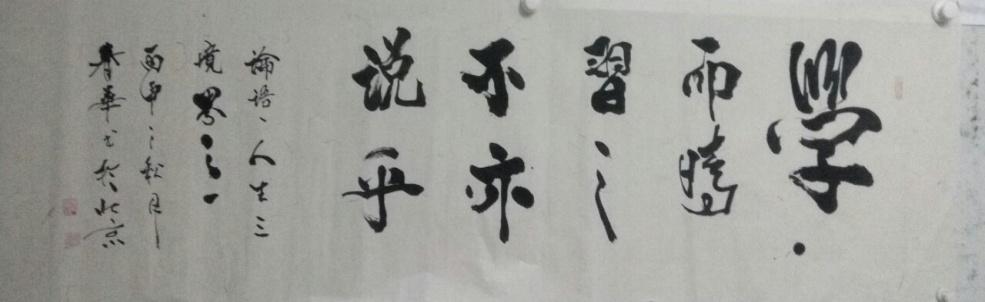 學·
而時
習之
不亦
说乎
論語、人生三
境界之一
丙申之秋月
春華书於北京